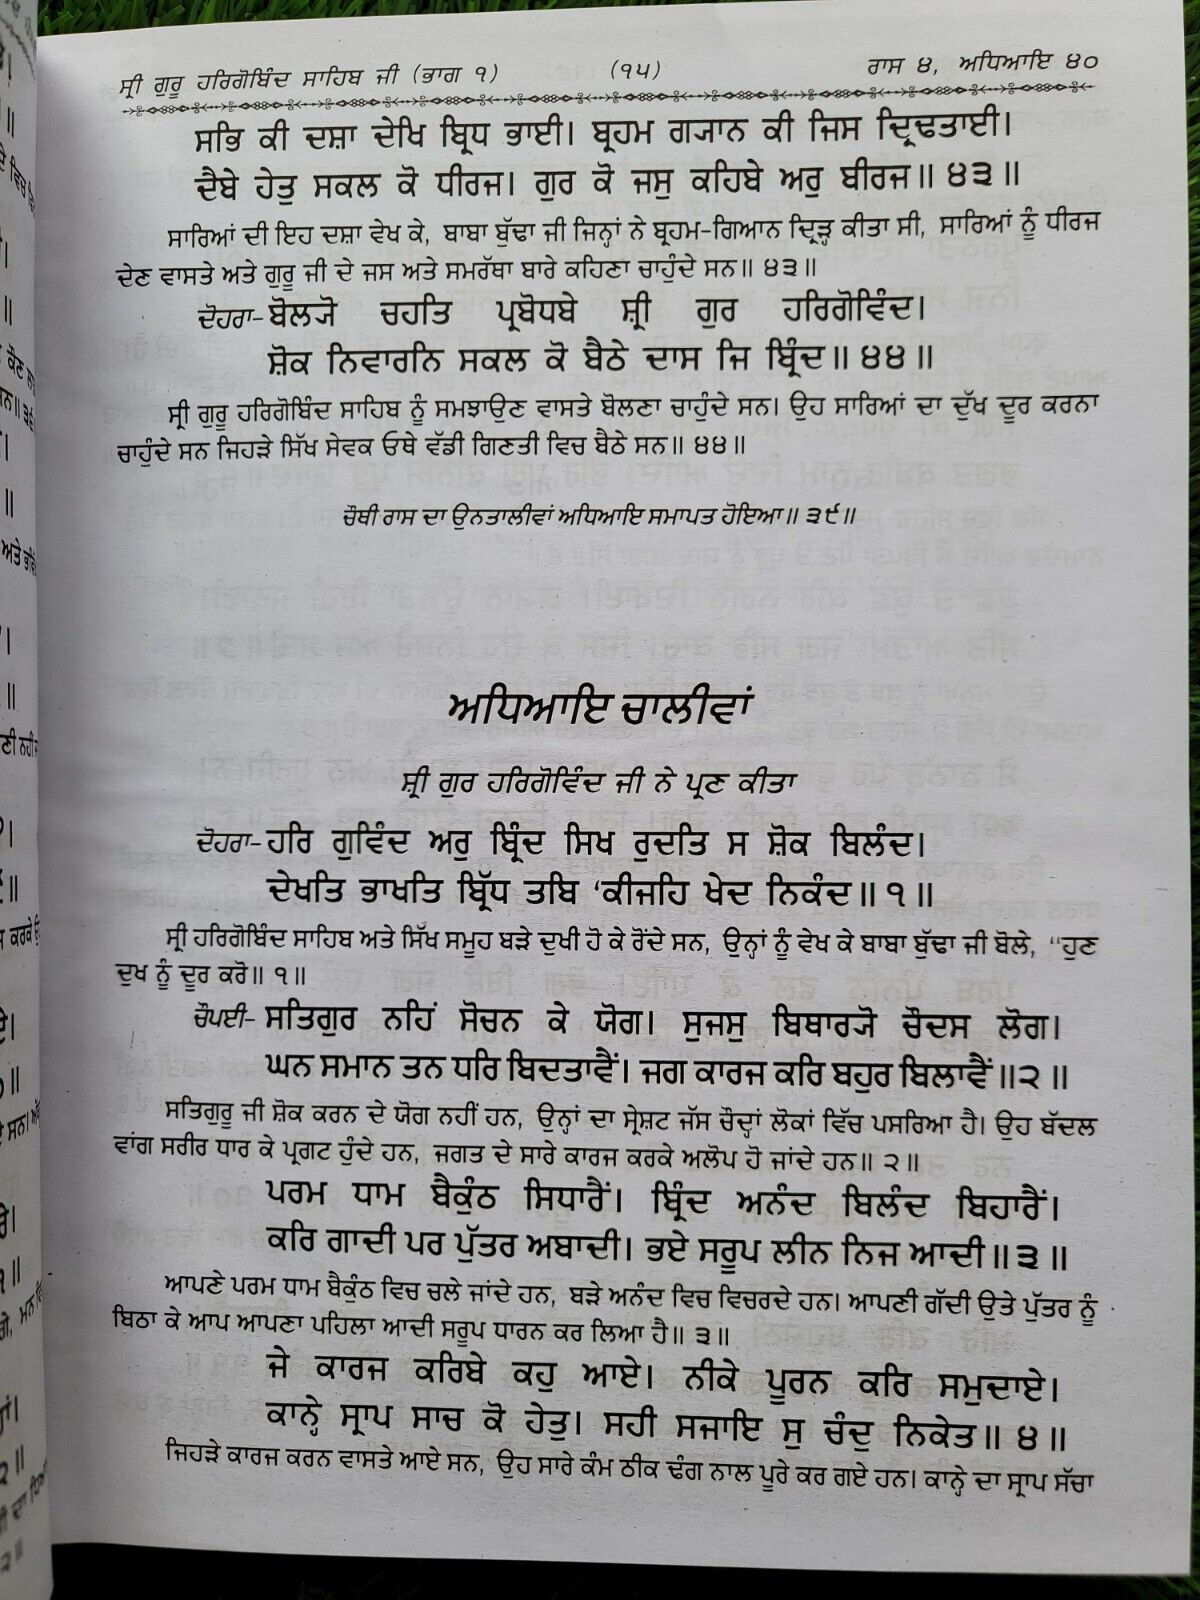 ਸ੍ਰੀ ਗੁਰੂ ਹਰਿਗੋਬਿੰਦ ਸਾਹਿਬ ਜੀ (ਭਾਗ ੧) (੧੫) ਰਾਸ ੪, ਅਧਿਆਇ ੪੦
ਸਭਿ ਕੀ ਦਸ਼ਾ ਦੇਖਿ ਬ੍ਰਿਧ ਭਾਈ। ਬ੍ਰਹਮ ਗ੍ਯਾਨ ਕੀ ਜਿਸ ਦ੍ਰਿਢਤਾਈ।
ਦੈਬੇ ਹੇਤੁ ਸਕਲ ਕੋ ਧੀਰਜ। ਗੁਰ ਕੋ ਜਸੁ ਕਹਿਬੇ ਅਰੁ ਬੀਰਜ॥ ੪੩॥
ਸਾਰਿਆਂ ਦੀ ਇਹ ਦਸ਼ਾ ਵੇਖ ਕੇ, ਬਾਬਾ ਬੁੱਢਾ ਜੀ ਜਿਨ੍ਹਾਂ ਨੇ ਬ੍ਰਹਮ-ਗਿਆਨ ਦ੍ਰਿੜ੍ਹ ਕੀਤਾ ਸੀ, ਸਾਰਿਆਂ ਨੂੰ ਧੀਰਜ
ਦੇਣ ਵਾਸਤੇ ਅਤੇ ਗੁਰੂ ਜੀ ਦੇ ਜਸ ਅਤੇ ਸਮਰੱਥਾ ਬਾਰੇ ਕਹਿਣਾ ਚਾਹੁੰਦੇ ਸਨ॥ ੪੩॥
ਦੋਹਰਾ- ਬੋਲ੍ਯੋ ਚਹਤਿ ਪ੍ਰਬੋਧਬੇ ਸ਼੍ਰੀ ਗੁਰ ਹਰਿਗੋਵਿੰਦ।
ਸ਼ੋਕ ਨਿਵਾਰਨਿ ਸਕਲ ਕੋ ਬੈਠੇ ਦਾਸ ਜਿ ਬ੍ਰਿੰਦ॥ ੪੪॥
ਸ੍ਰੀ ਗੁਰੂ ਹਰਿਗੋਬਿੰਦ ਸਾਹਿਬ ਨੂੰ ਸਮਝਾਉਣ ਵਾਸਤੇ ਬੋਲਣਾ ਚਾਹੁੰਦੇ ਸਨ। ਉਹ ਸਾਰਿਆਂ ਦਾ ਦੁੱਖ ਦੂਰ ਕਰਨਾ
ਚਾਹੁੰਦੇ ਸਨ ਜਿਹੜੇ ਸਿੱਖ ਸੇਵਕ ਓਥੇ ਵੱਡੀ ਗਿਣਤੀ ਵਿਚ ਬੈਠੇ ਸਨ॥ ੪੪॥
ਚੌਥੀ ਰਾਸ ਦਾ ਉਨਤਾਲੀਵਾਂ ਅਧਿਆਇ ਸਮਾਪਤ ਹੋਇਆ॥ ੩੯॥
ਅਧਿਆਇ ਚਾਲੀਵਾਂ
ਸ਼੍ਰੀ ਗੁਰ ਹਰਿਗੋਵਿੰਦ ਜੀ ਨੇ ਪ੍ਰਣ ਕੀਤਾ
ਦੋਹਰਾ- ਹਰਿ ਗੁਵਿੰਦ ਅਰੁ ਬ੍ਰਿੰਦ ਸਿਖ ਰੁਦਤਿ ਸ ਸ਼ੋਕ ਬਿਲੰਦ।
ਦੇਖਤਿ ਭਾਖਤਿ ਬ੍ਰਿੱਧ ਤਬਿ ‘ਕੀਜਹਿ ਖੇਦ ਨਿਕੰਦ॥ ੧॥
ਸ੍ਰੀ ਹਰਿਗੋਬਿੰਦ ਸਾਹਿਬ ਅਤੇ ਸਿੱਖ ਸਮੂਹ ਬੜੇ ਦੁਖੀ ਹੋ ਕੇ ਰੋਂਦੇ ਸਨ, ਉਨ੍ਹਾਂ ਨੂੰ ਵੇਖ ਕੇ ਬਾਬਾ ਬੁੱਢਾ ਜੀ ਬੋਲੇ, “ਹੁਣ
ਦੁਖ ਨੂੰ ਦੂਰ ਕਰੋ॥ ੧॥
ਚੌਪਈ- ਸਤਿਗੁਰ ਨਹਿੰ ਸੋਚਨ ਕੇ ਯੋਗ। ਸੁਜਸੁ ਬਿਥਾਰ੍ਯੋ ਚੌਦਸ ਲੋਗ।
ਘਨ ਸਮਾਨ ਤਨ ਧਰਿ ਬਿਦਤਾਵੈਂ। ਜਗ ਕਾਰਜ ਕਰਿ ਬਹੁਰ ਬਿਲਾਵੈਂ॥੨॥
ਸਤਿਗੁਰੂ ਜੀ ਸ਼ੋਕ ਕਰਨ ਦੇ ਯੋਗ ਨਹੀਂ ਹਨ, ਉਨ੍ਹਾਂ ਦਾ ਸ੍ਰੇਸ਼ਟ ਜੱਸ ਚੌਦ੍ਹਾਂ ਲੋਕਾਂ ਵਿੱਚ ਪਸਰਿਆ ਹੈ। ਉਹ ਬੱਦਲ
ਵਾਂਗ ਸਰੀਰ ਧਾਰ ਕੇ ਪ੍ਰਗਟ ਹੁੰਦੇ ਹਨ, ਜਗਤ ਦੇ ਸਾਰੇ ਕਾਰਜ ਕਰਕੇ ਅਲੋਪ ਹੋ ਜਾਂਦੇ ਹਨ॥ ੨॥
ਪਰਮ ਧਾਮ ਬੈਕੁੰਠ ਸਿਧਾਰੈਂ। ਬ੍ਰਿੰਦ ਅਨੰਦ ਬਿਲੰਦ ਬਿਹਾਰੈਂ।
ਕਰਿ ਗਾਦੀ ਪਰ ਪੁੱਤਰ ਅਬਾਦੀ। ਭਏ ਸਰੂਪ ਲੀਨ ਨਿਜ ਆਦੀ॥੩॥
ਆਪਣੇ ਪਰਮ ਧਾਮ ਬੈਕੁੰਠ ਵਿਚ ਚਲੇ ਜਾਂਦੇ ਹਨ, ਬੜੇ ਅਨੰਦ ਵਿਚ ਵਿਚਰਦੇ ਹਨ। ਆਪਣੀ ਗੱਦੀ ਉਤੇ ਪੁੱਤਰ ਨੂੰ
ਬਿਠਾ ਕੇ ਆਪ ਆਪਣਾ ਪਹਿਲਾ ਆਦੀ ਸਰੂਪ ਧਾਰਨ ਕਰ ਲਿਆ ਹੈ॥ ੩॥
ਜੇ ਕਾਰਜ ਕਰਿਬੇ ਕਹੁ ਆਏ। ਨੀਕੇ ਪੂਰਨ ਕਰਿ ਸਮੁਦਾਏ।
ਕਾਨ੍ਹੇ ਸ੍ਰਾਪ ਸਾਚ ਕੋ ਹੇਤੁ। ਸਹੀ ਸਜਾਇ ਸੁ ਚੰਦੁ ਨਿਕੇਤ॥ ੪॥
ਜਿਹੜੇ ਕਾਰਜ ਕਰਨ ਵਾਸਤੇ ਆਏ ਸਨ, ਉਹ ਸਾਰੇ ਕੰਮ ਠੀਕ ਢੰਗ ਨਾਲ ਪੂਰੇ ਕਰ ਗਏ ਹਨ। ਕਾਨ੍ਹੇ ਦਾ ਸ੍ਰਾਪ ਸੱਚਾ